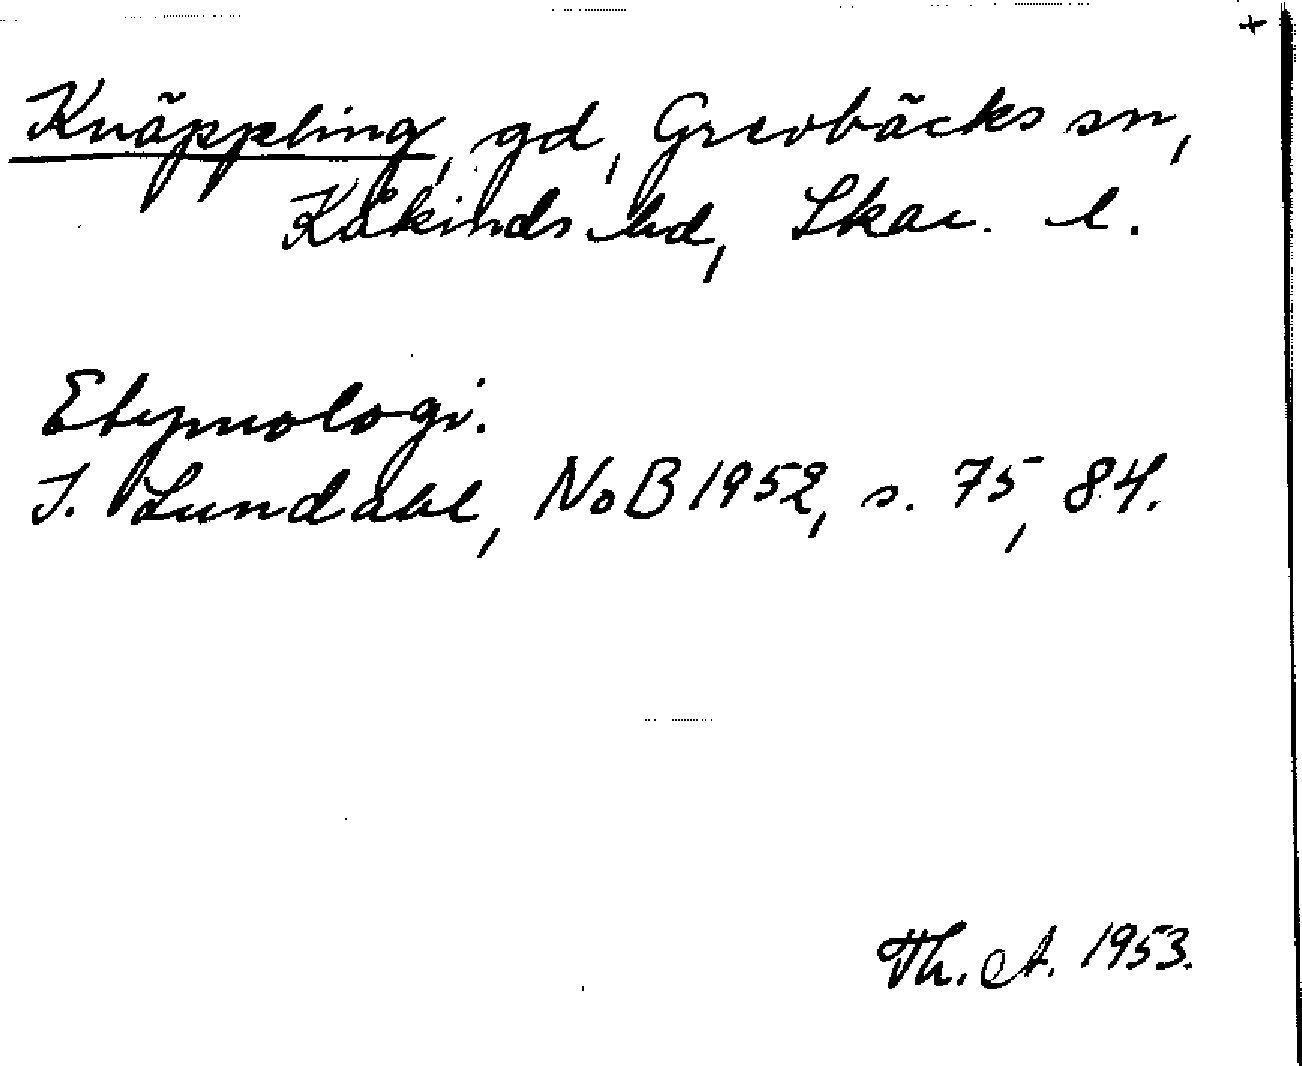 +
Knäppling, gd, Grevbäcks sn,
Kåkinds hd, Skar. l.
Etymologi.
I. Lundahl, NoB 1952, s. 75, 84.
Th. A. 1953.